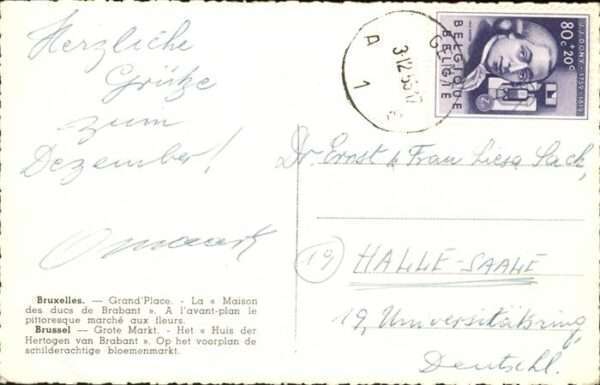 Herzliche
Grütze
zum
Dezember!
Bruxelles. — Grand'Place. - La « Maison
des ducs de Brabant ». A l'avant-plan le
pittoresque marché aux fleurs.
Brussel — Grote Markt. - Het « Huis der
Hertogen van Brabant ». Op het voorplan de
schilderachtige bloemenmarkt.
A
1
G
80c+20c
J.J. DONY - 1759-1819
BELGIQUE
BELGIE
Dr Ernst & Frau Liesa Sack,
19
HALLE-SAALE
19, Universitätsring,
Deutschl.